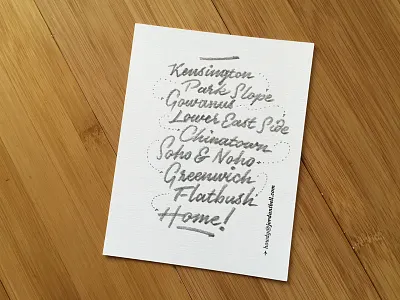 Kensington
Park Slope
Gowanus
Lower East Side
Chinatown
Soho & Noho
Greenwich
Flatbush
Home!
→ howdy@jordanthell.com